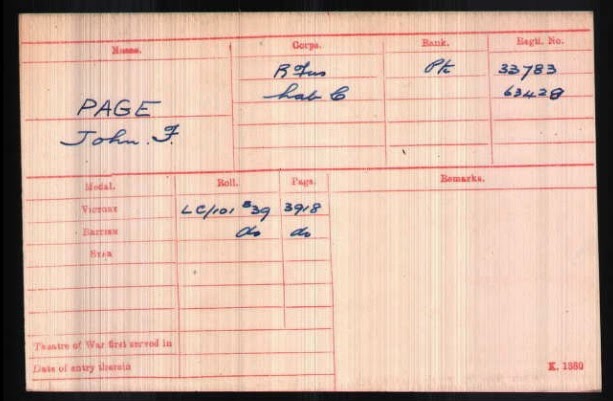 Name. Corps. Rank. Regtl. No.
R Fus Pte 33783
Lab C 63428
PAGE
John. F.
Medal. Roll. Page. Remarks.
VICTORY LC/101 B39 3918
BRITISH do do
STAR
Theatre of War first served in
Date of entry therein
K. 1380